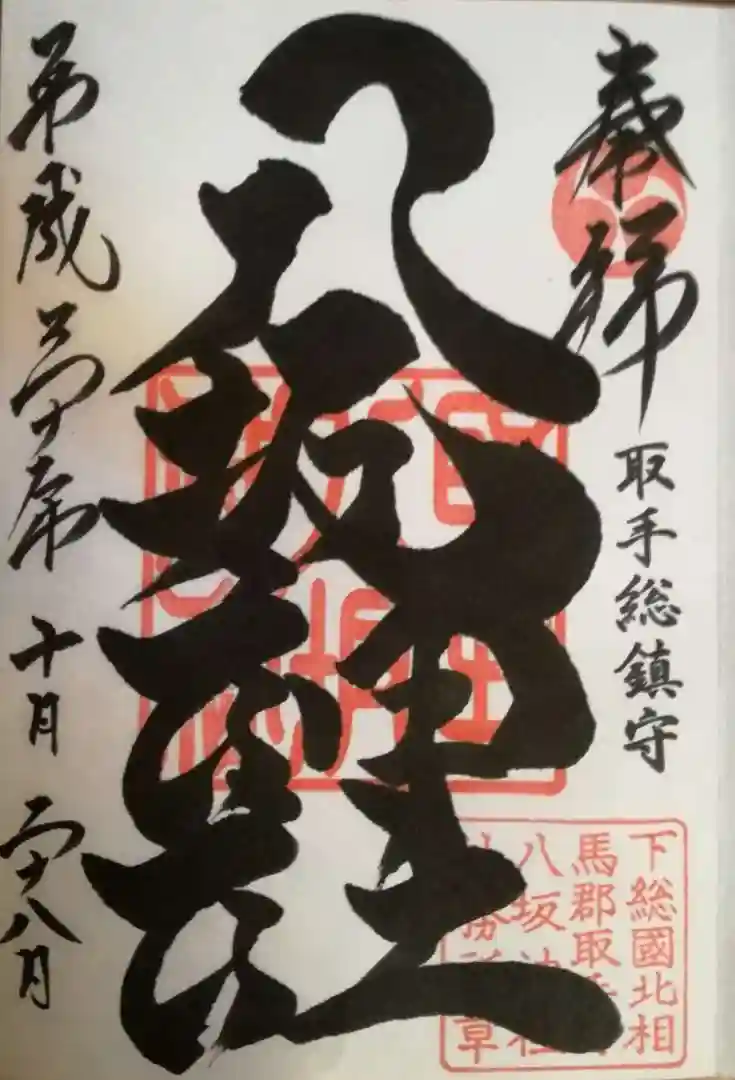 奉拝
取手総鎮守
八坂神社
平成三十年 十月 二十八日
下総國北相
馬郡取手
八坂神社